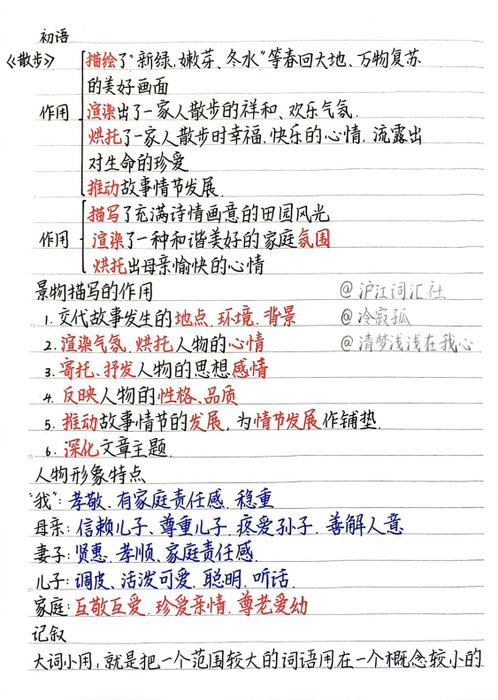 初语
《散步》
描绘了"新绿、嫩芽、冬水"等春回大地、万物复苏
的美好画面
作用 渲染出了一家人散步的祥和、欢乐气氛.
烘托了一家人散步时幸福.快乐的心情.流露出
对生命的珍爱
推动故事情节发展.
描写了充满诗情画意的田园风光
作用 渲染了一种和谐美好的家庭氛围
烘托出母亲愉快的心情
景物描写的作用 @沪江词汇社
1.交代故事发生的地点.环境.背景 @冷寂孤
2.渲染气氛.烘托人物的心情 @清梦浅浅在我心
3.寄托、抒发人物的思想感情
4.反映人物的性格、品质
5.推动故事情节的发展,为情节发展作铺垫.
6.深化文章主题.
人物形象特点
"我":孝敬、有家庭责任感.稳重
母亲:信赖儿子、尊重儿子.疼爱孙子.善解人意
妻子:贤惠、孝顺、家庭责任感.
儿子:调皮、活泼可爱.聪明.听话.
家庭:互敬互爱.珍爱亲情.尊老爱幼
记叙
大词小用,就是把一个范围较大的词语用在一个概念较小的